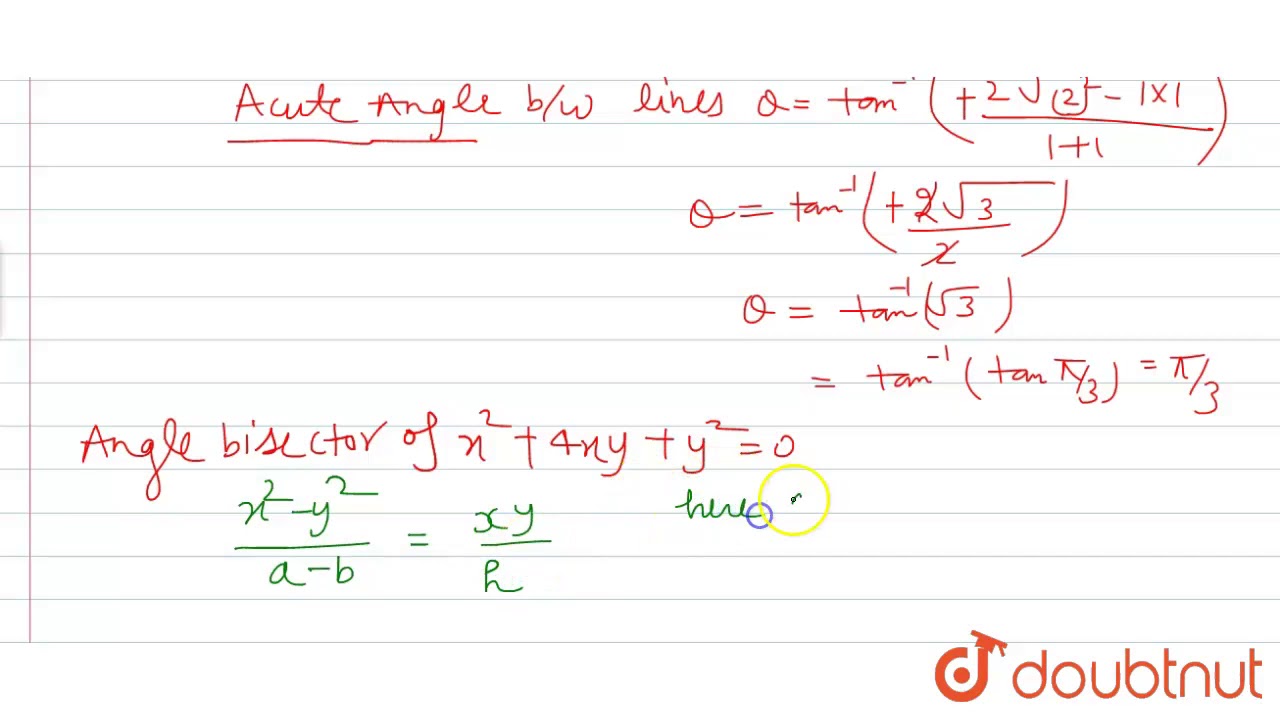 Acute Angle b/w lines θ = tan⁻¹ ( + 2√(2)² - 1×1 / 1+1 )
θ = tan⁻¹ ( + 2√3 / 2 )
θ = tan⁻¹ (√3)
= tan⁻¹ (tan π/3) = π/3
Angle bisector of x² + 4xy + y² = 0
x² - y² / a - b = xy / h here
doubtnut